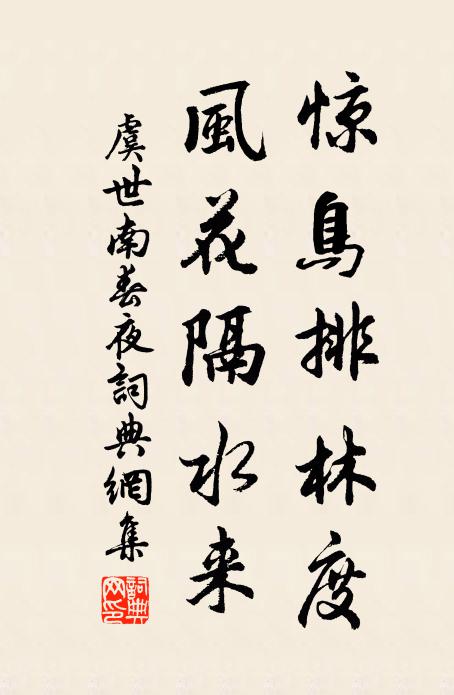 惊鳥排林度
風花隔水来
虞世南春夜詞典網集
詞典网印